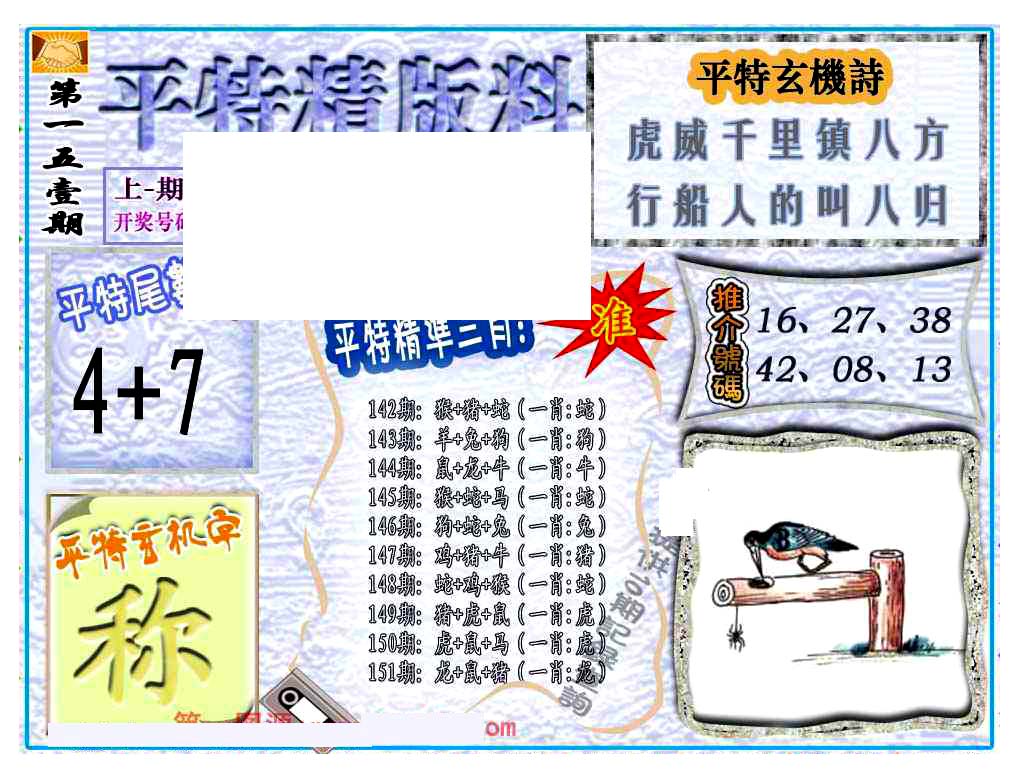 第一五壹期
平特精版料
上-期
开奖号码
平特玄機詩
虎威千里镇八方
行船人的叫八归
平特尾數
4+7
平特精準三肖!
准
推介號碼
16、27、38
42、08、13
142期: 猴+猪+蛇 (一肖:蛇)
143期: 羊+兔+狗 (一肖:狗)
144期: 鼠+龙+牛 (一肖:牛)
145期: 猴+蛇+马 (一肖:蛇)
146期: 狗+蛇+兔 (一肖:兔)
147期: 鸡+猪+牛 (一肖:猪)
148期: 蛇+鸡+猴 (一肖:蛇)
149期: 猪+虎+鼠 (一肖:虎)
150期: 虎+鼠+马 (一肖:虎)
151期: 龙+鼠+猪 (一肖:龙)
平特玄机字
称
om